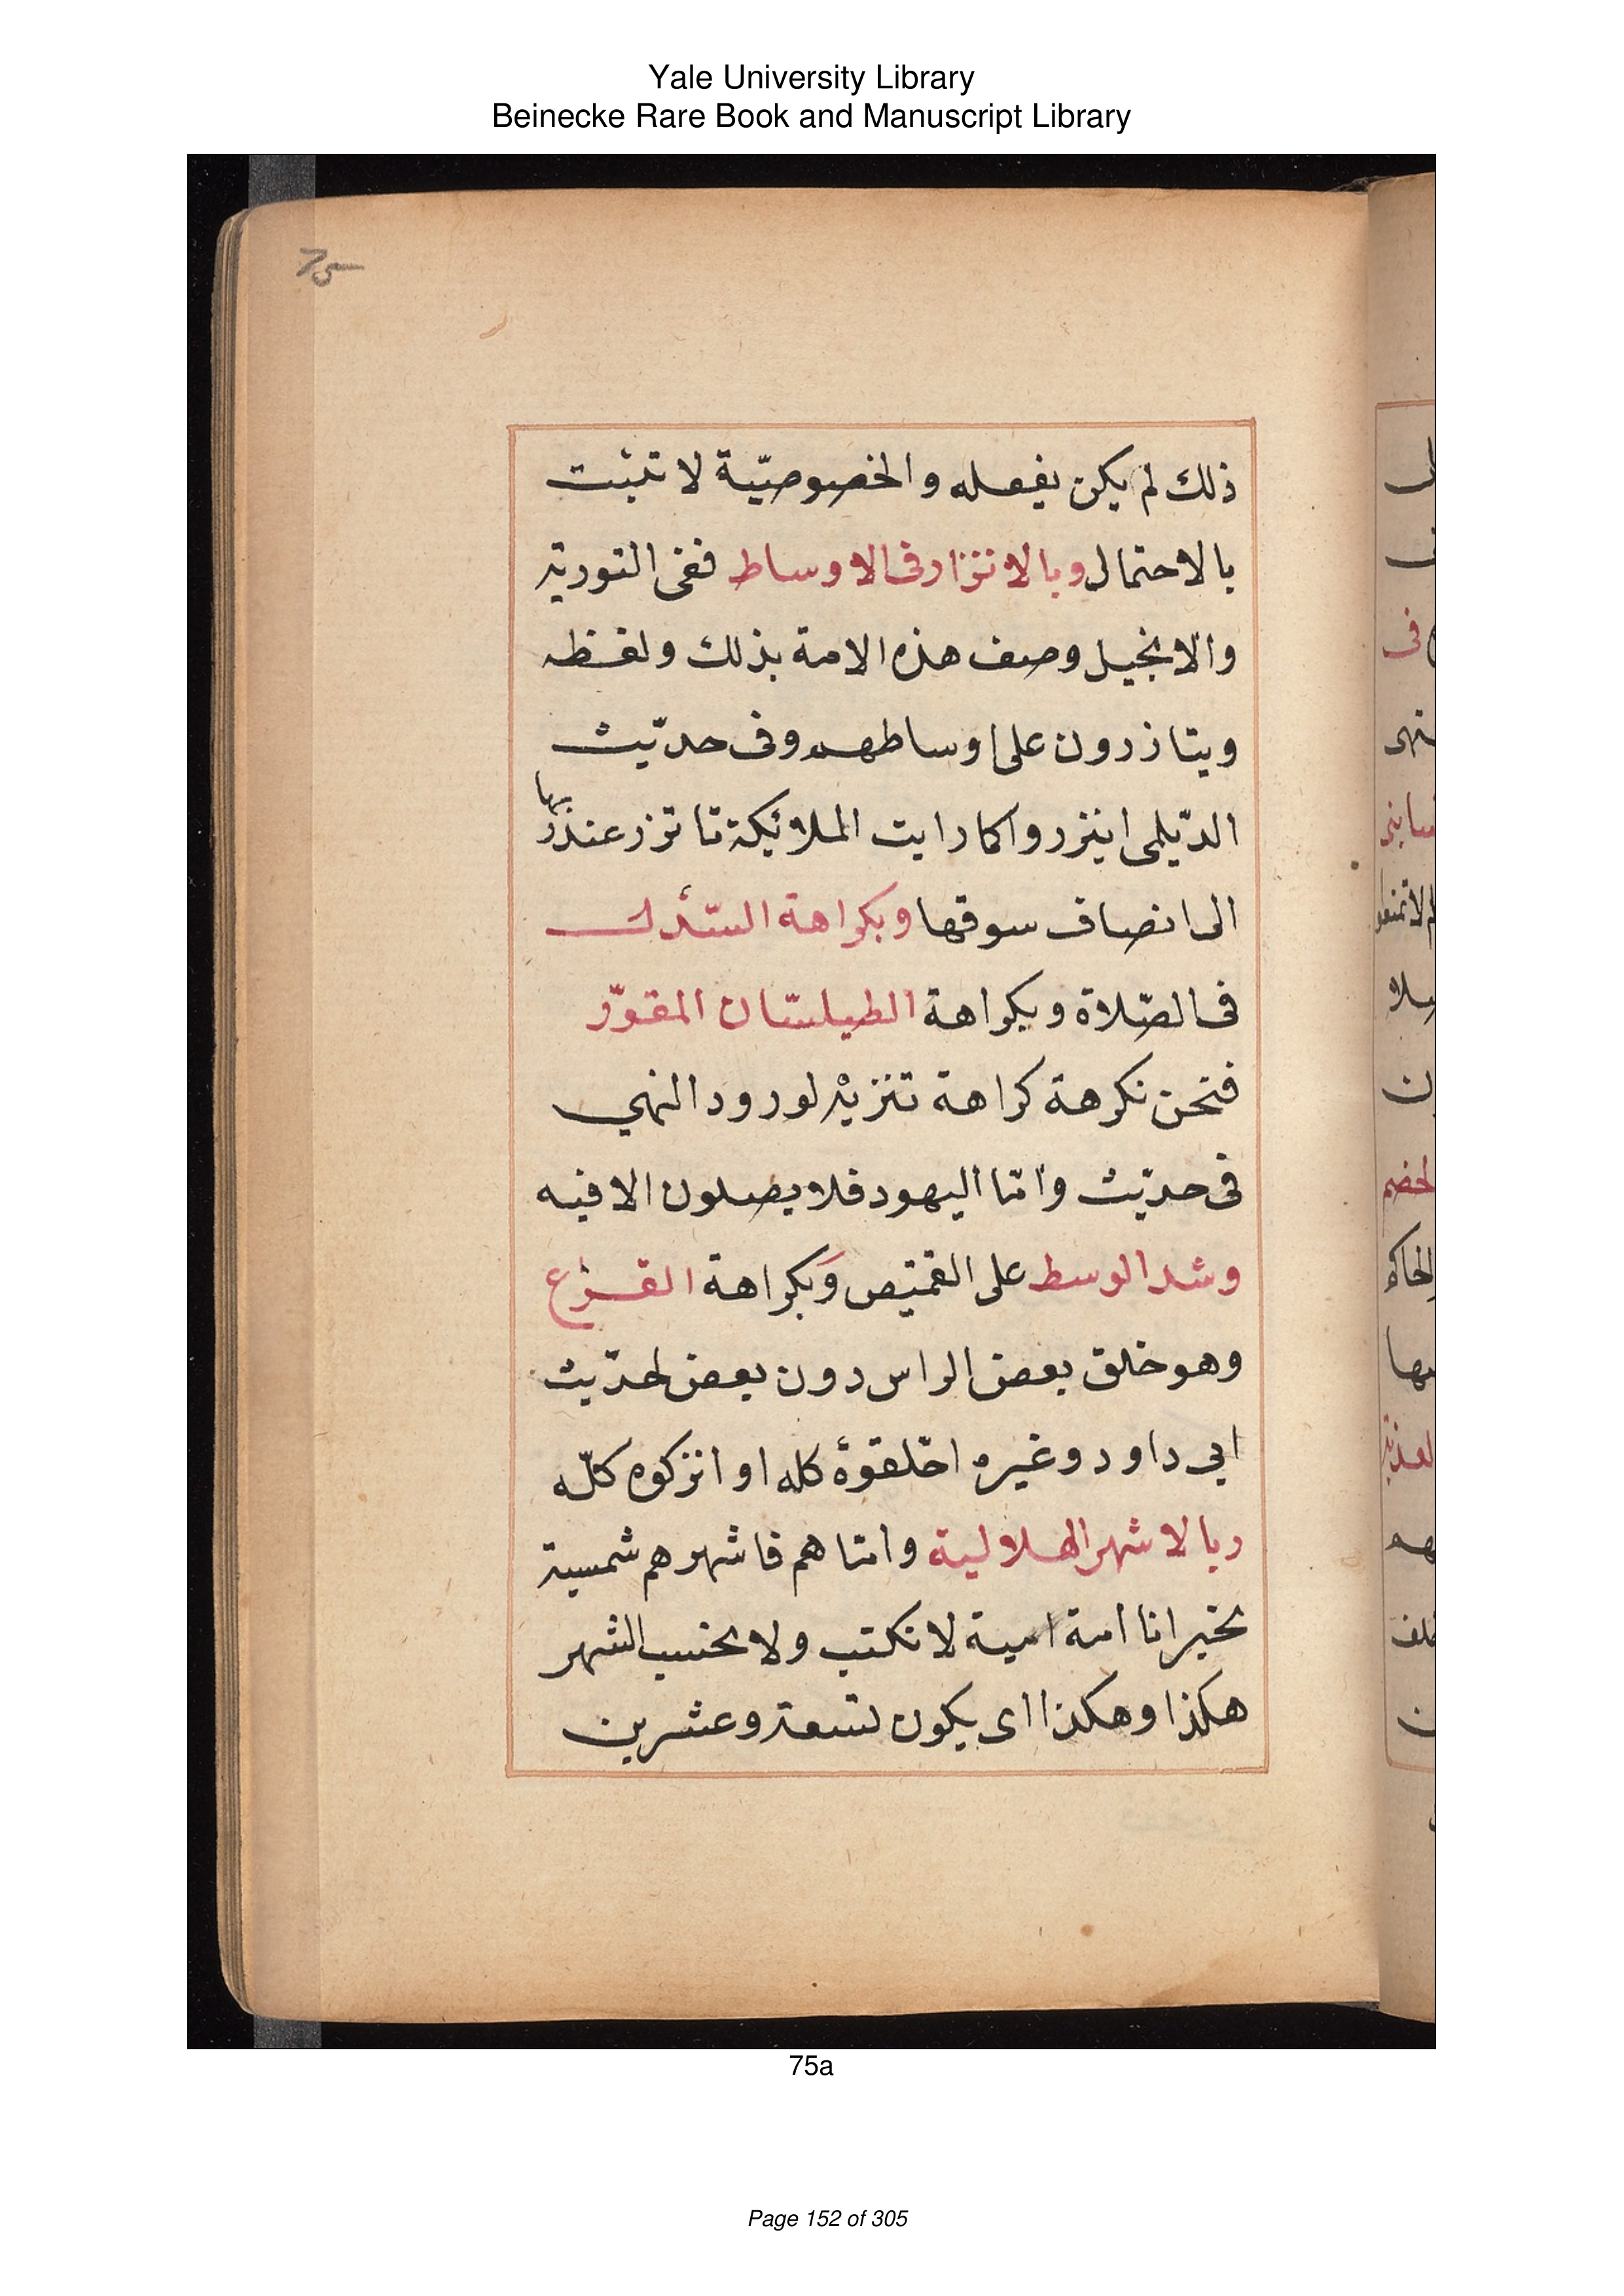 Yale University Library
Beinecke Rare Book and Manuscript Library
75
ذلك لم يكن يفعله والخصوصيّة لا تثبت
بالاحتمال وبالاتزار فى الاوساط ففى التورية
والانجيل وصف هذه الامة بذلك ولفظه
ويتازرون على اوساطهم وفى حديث
الدّيلمى ايتزروا كما رايت الملائكة تاتزر عند ربها
الى انصاف سوقها وبكراهة السّدل
فى الصّلاة وبكراهة الطيلسان المقوّر
فنحن نكرهة كراهة تنزيه لورود النهي
فى حديث وامّا اليهود فلا يصلون الا فيه
وشد الوسط على القميص وبكراهة القزع
وهو خلق بعض الراس دون بعض لحديث
ابي داود وغيره احلقوة كله او اتركوه كلّه
وبالاشهر الهلالية وامّا هم فاشهرهم شمسية
بخير انا امة امية لا نكتب ولا نحسب الشهر
هكذا وهكذا اى يكون تسعة وعشرين
75a
Page 152 of 305